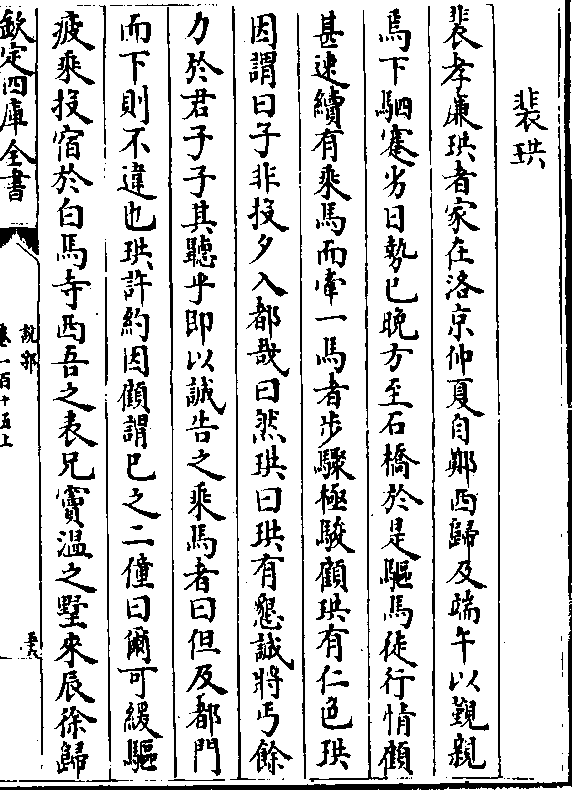 裴珙
裴孝廉珙者家在洛京仲夏自鄭西歸及端午以覲親
焉下駟蹇劣日勢已晚方至石橋於是驅馬徒行情顧
甚速續有乘馬而牽一馬者步驟極駿顧珙有仁色珙
因謂曰子非投夕入都哉曰然珙曰珙有懇誠將丐餘
力於君子子其聽乎即以誠告之乘馬者曰但及都門
而下則不違也珙許約因顧謂已之二僮曰爾可緩驅
疲乘投宿於白馬寺西吾之表兄竇溫之墅來辰徐歸
欽定四庫全書
說郛
卷一百十五上